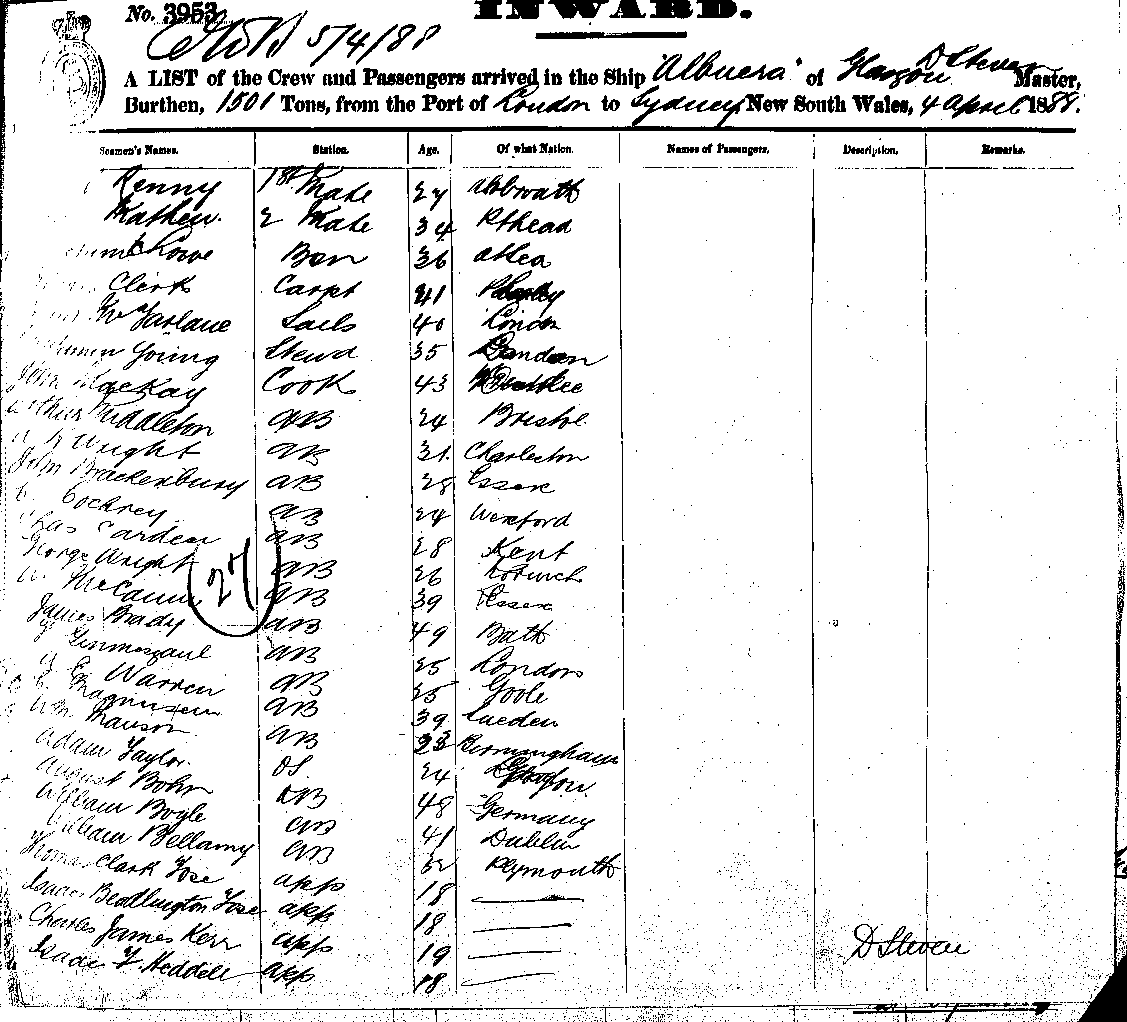 INWARD.
No. 3953
5/4/88
A LIST of the Crew and Passengers arrived in the Ship "Albuera" of Glasgow D Steven Master,
Burthen, 1501 Tons, from the Port of London to Sydney, New South Wales, 4 April 1888.
Seamen's Names. Station. Age. Of what Nation. Names of Passengers. Description. Remarks.
Renny 1st Mate 27
2 Mate 34
Lowe 36
Clerk Carpt 41
McFarlane Sails 40 London
Young Stewd 35
John MacKay Cook 43
Arthur Middleton AB 24 Bristol
Wright AB 31 Charleston
John Brackenbury AB 28 Essex
Cochrey AB 24 Wexford
Chas Carden AB 28 Kent
George Wright AB 26
McCann AB 39 Essex
James Brady AB 49 Bath
AB 25 London
Warren AB 25 Goole
Magnusen AB 39 Sweden
AB Birmingham
Adam Taylor OS 24
August Bohn AB 48 Germany
William Boyle AB 41 Dublin
William Bellamy AB Plymouth
Thomas Clark Fose app 18
Isaac Bedlington Fose app 18
Charles James Kerr app 19
Isaac T. Heddell app 18
27
D Steven